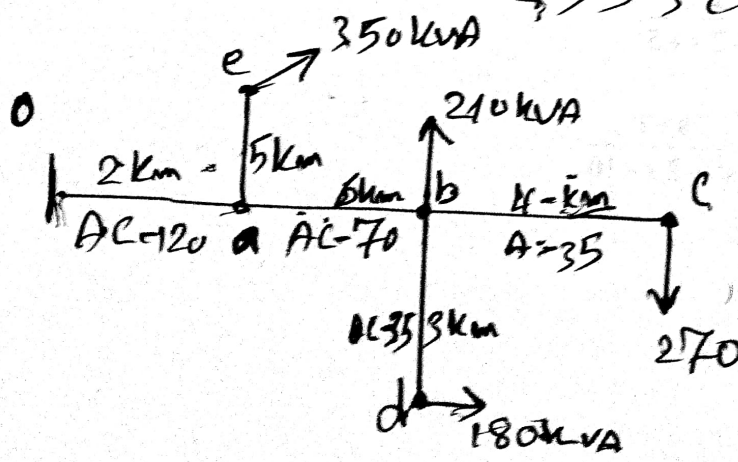 350kVA
e
0
210kVA
2km
5km
6km
b
4-km
C
AC-120
a
AC-70
A-35
3km
270
d
180kVA